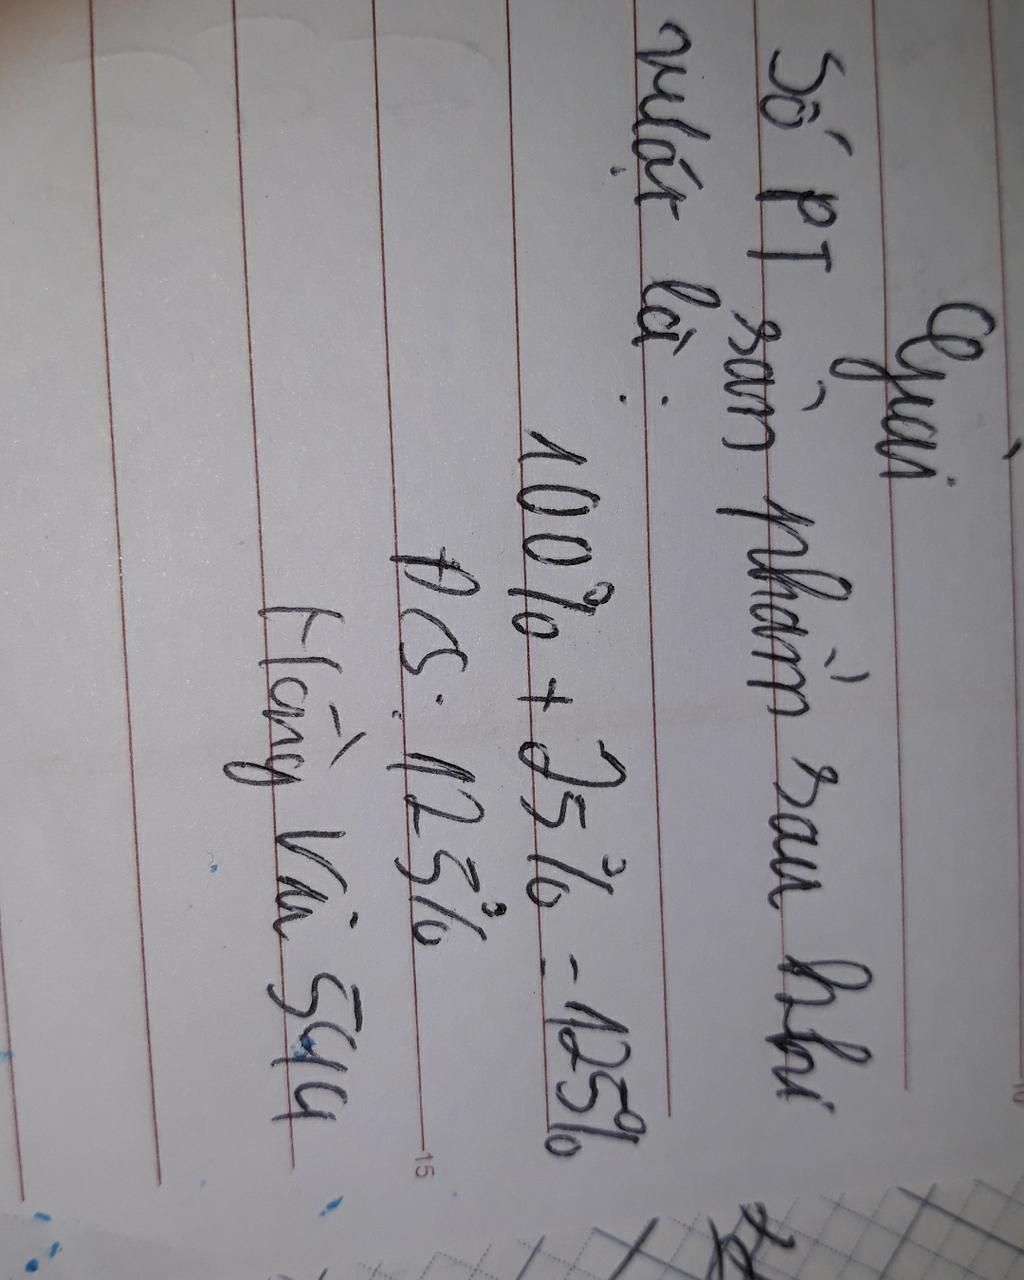 Giải
Số PT sản phẩm sau khi
vượt là:
100% + 25% = 125%
ĐS: 125%
Hồng Vân 544
10
15